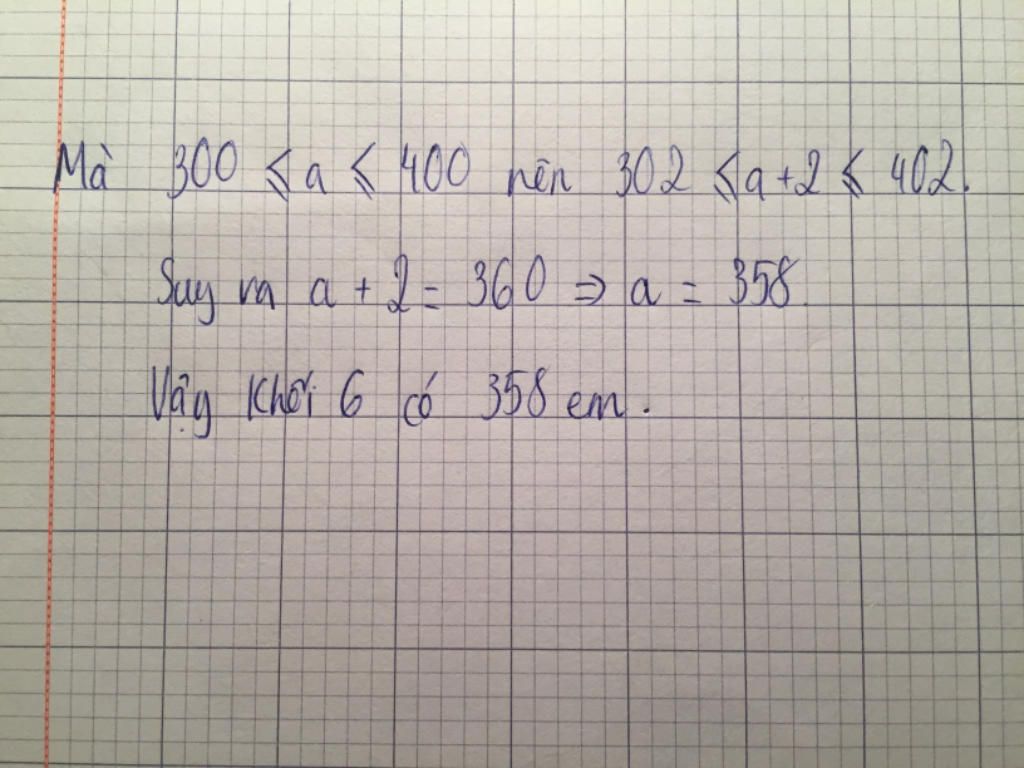 Mà 300 ⩽ a ⩽ 400 nên 302 ⩽ a+2 ⩽ 402.
Suy ra a + 2 = 360 ⇒ a = 358.
Vậy khối 6 có 358 em.